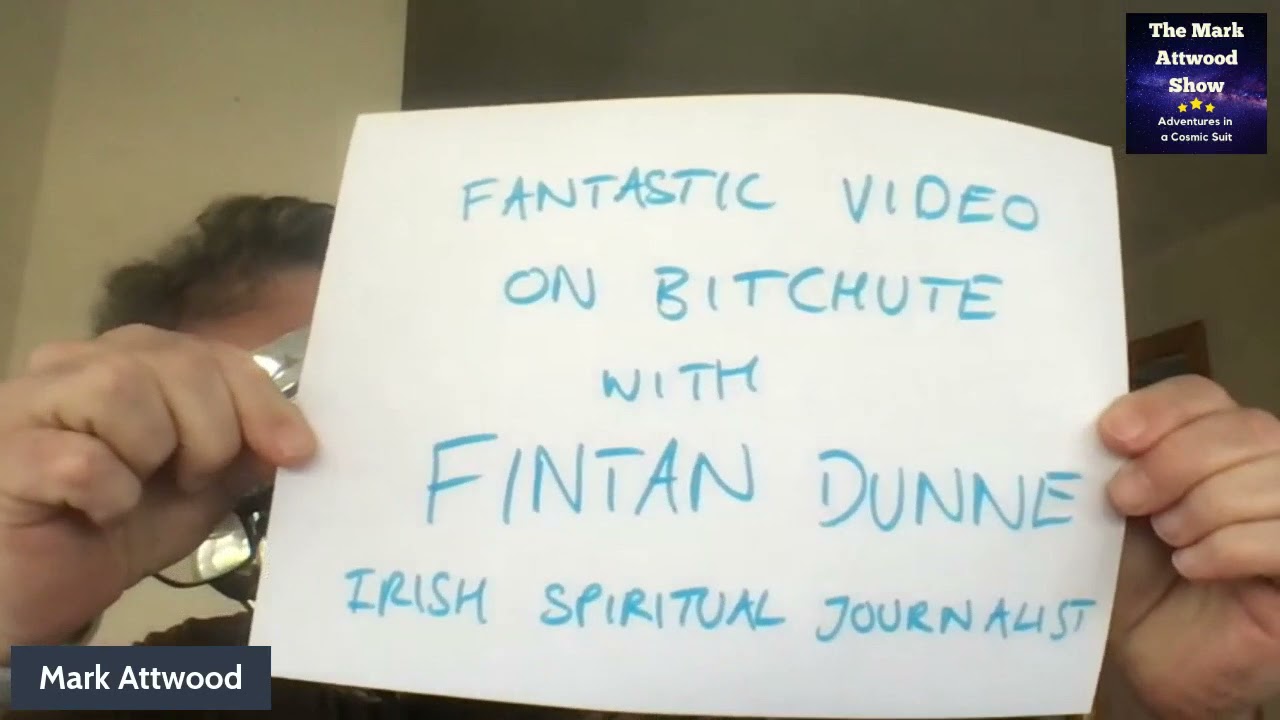 The Mark
Attwood
Show
Adventures in
a Cosmic Suit
FANTASTIC VIDEO
ON BITCHUTE
WITH
FINTAN DUNNE
IRISH SPIRITUAL JOURNALIST
Mark Attwood